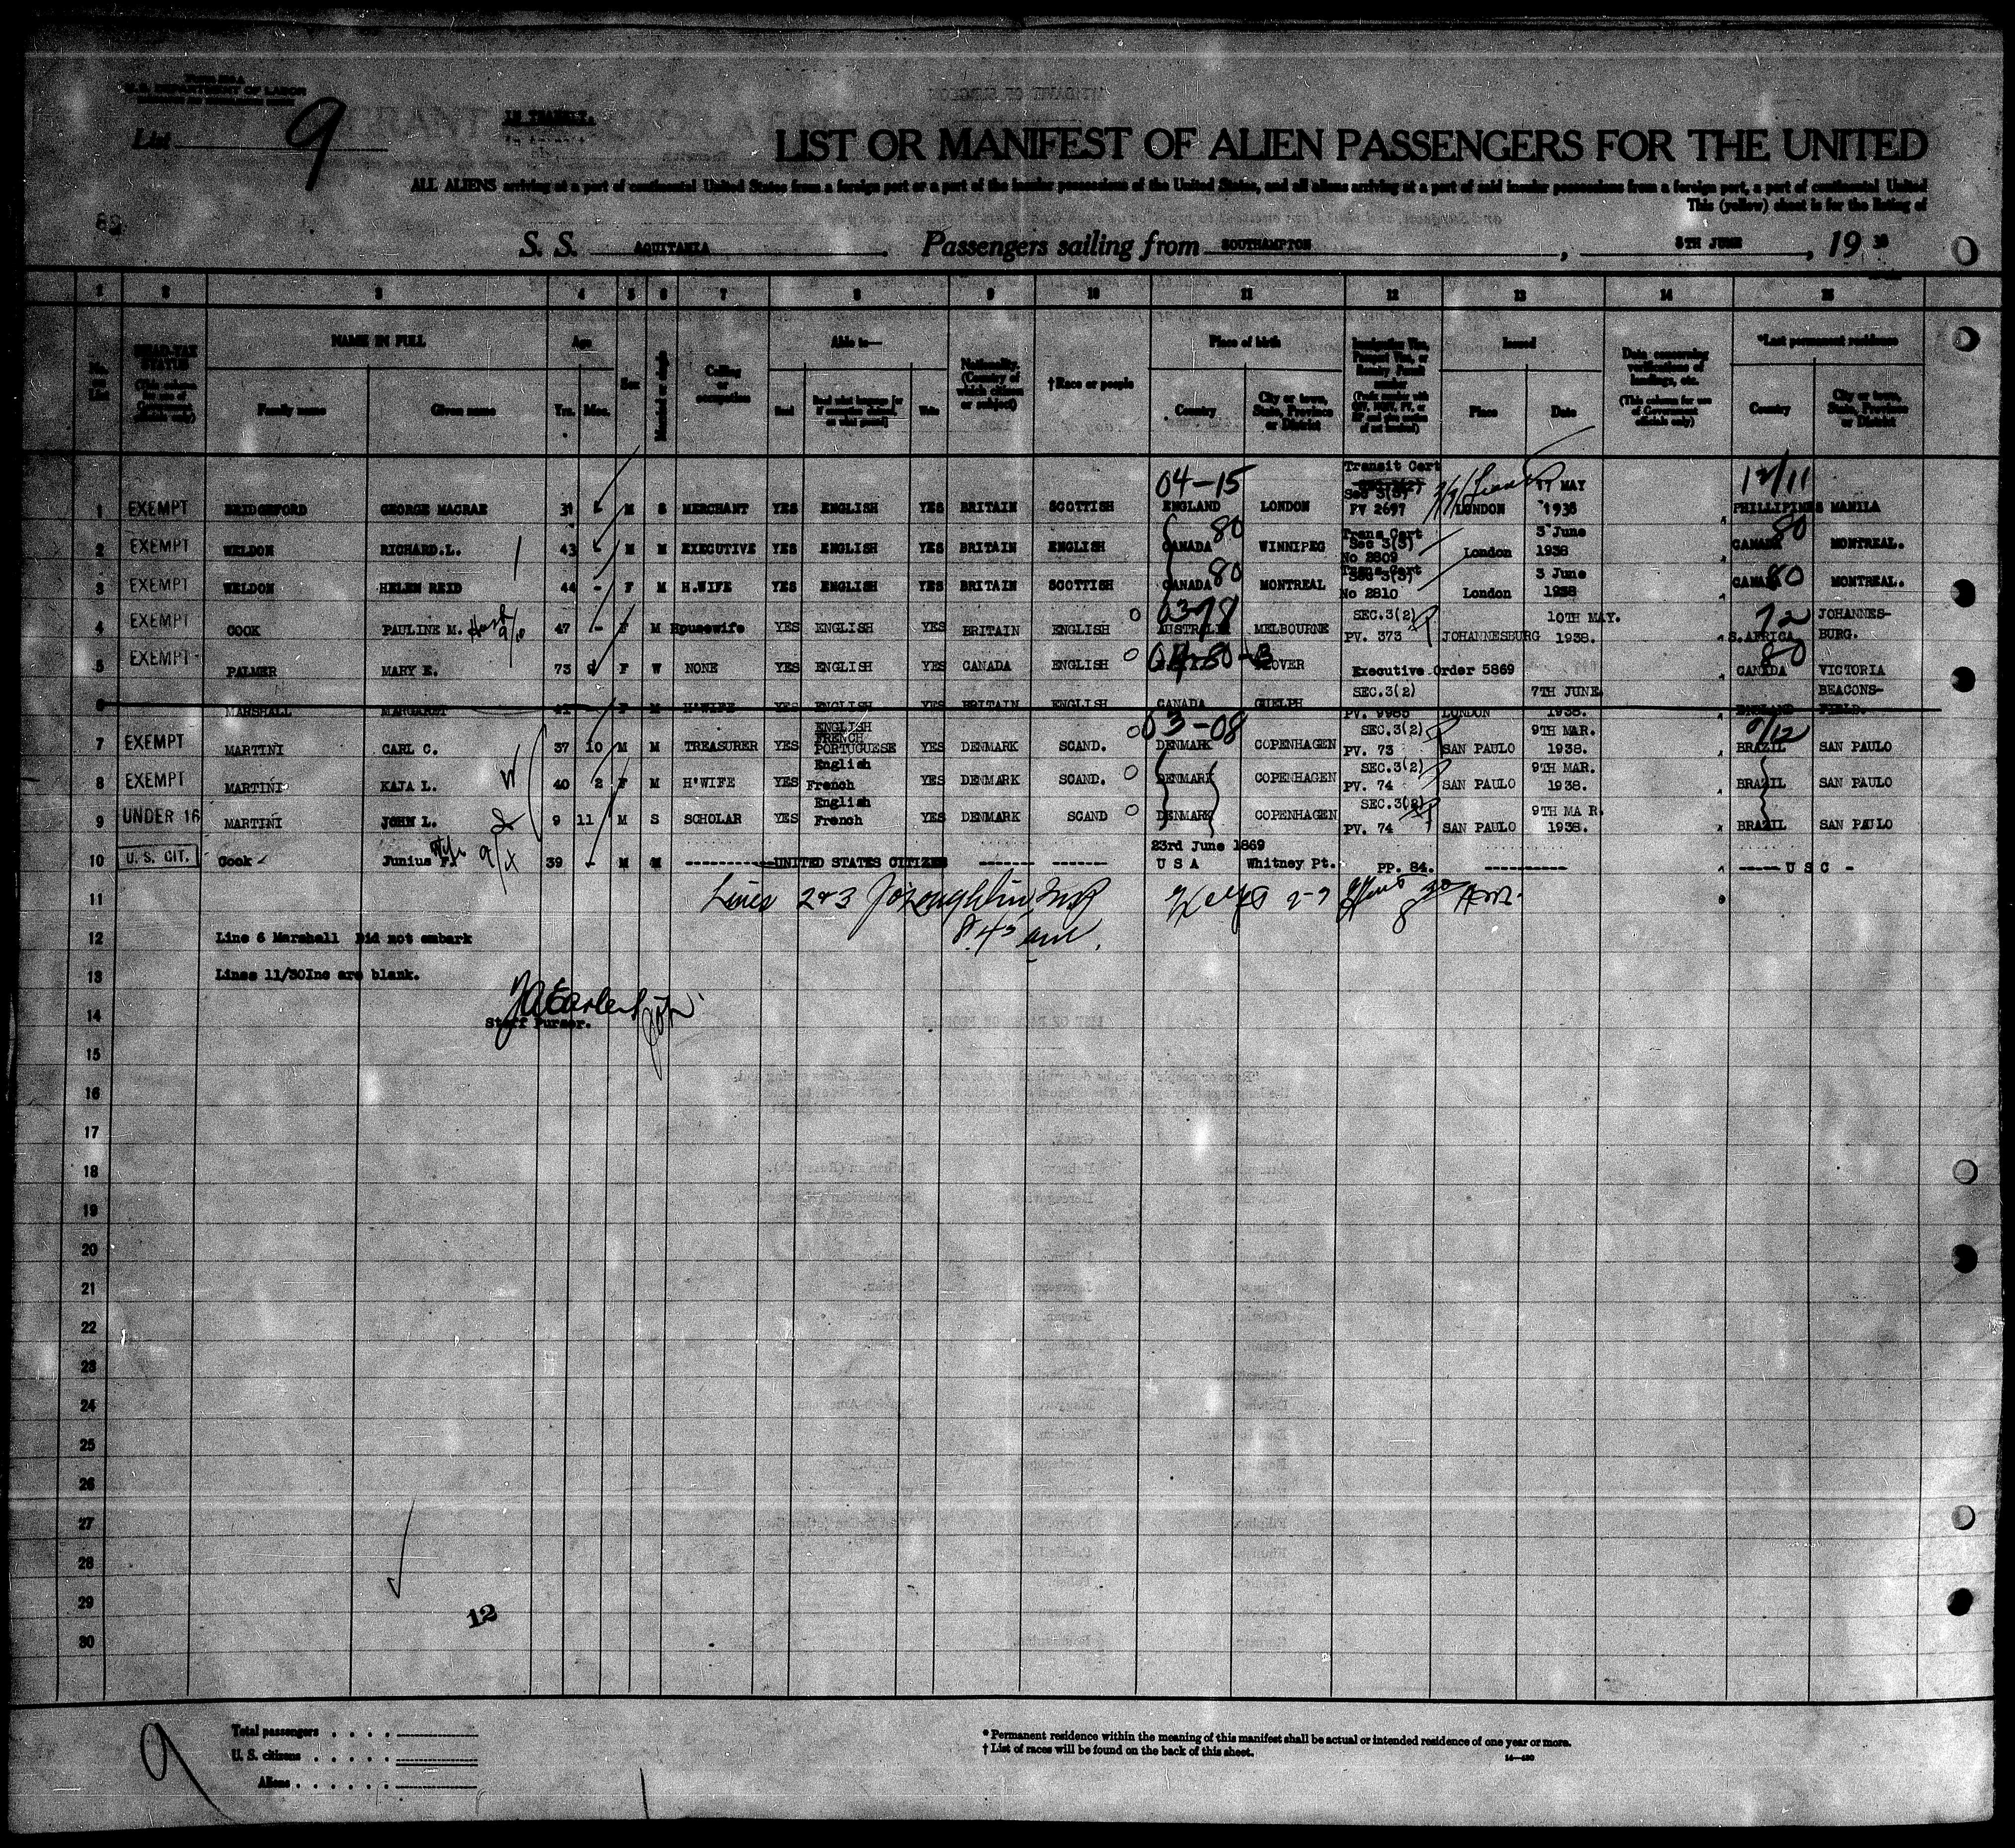 U.S. DEPARTMENT OF LABOR
List 9
IN TRANSIT.
LIST OR MANIFEST OF ALIEN PASSENGERS FOR THE UNITED
ALL ALIENS arriving at a port of continental United States from a foreign port or a port of the insular possessions of the United States, and all aliens arriving at a port of said insular possessions from a foreign port, a port of continental United
This (yellow) sheet is for the listing of
82
S. S. AQUITANIA Passengers sailing from SOUTHAMPTON, 8TH JUNE, 19 38
1 2 3 4 5 6 7 8 9 10 11 12 13 14 15
No. on List
HEAD-TAX STATUS (This column for use of Government officials only)
NAME IN FULL Family name Given name
Age Yrs. Mos.
Sex
Married or single
Calling or occupation
Able to— Read Read what language [or, if exemption claimed, on what ground] Write
Nationality. (Country of which citizen or subject)
†Race or people
Place of birth Country City or town, State, Province or District
Immigration Visa, Passport Visa, or Reentry Permit number
Issued Place Date
Data concerning verifications of landings, etc. (This column for use of Government officials only)
*Last permanent residence Country City or town, State, Province or District
04-15 Transit Cert Sec 3(3) 17 MAY 12/11
1 EXEMPT BRIDGEFORD GEORGE MACRAE 31 M S MERCHANT YES ENGLISH YES BRITAIN SCOTTISH ENGLAND LONDON PV 2697 LONDON 1938 PHILLIPINES MANILA
80 Trans Cert Sec 3(3) 3 June 80
2 EXEMPT WELDON RICHARD.L. 43 M M EXECUTIVE YES ENGLISH YES BRITAIN ENGLISH CANADA WINNIPEG No 2809 London 1938 CANADA MONTREAL.
80 Trans Cert Sec 3(3) 3 June 80
3 EXEMPT WELDON HELEN REID 44 - F M H.WIFE YES ENGLISH YES BRITAIN SCOTTISH CANADA MONTREAL No 2810 London 1938 CANADA MONTREAL.
SEC.3(2) 10TH MAY. 72 JOHANNES-
4 EXEMPT COOK PAULINE M. 47 - F M Housewife YES ENGLISH YES BRITAIN ENGLISH AUSTRALIA MELBOURNE PV. 373 JOHANNESBURG 1938. S.AFRICA BURG.
80
5 EXEMPT PALMER MARY E. 73 9 F W NONE YES ENGLISH YES CANADA ENGLISH Executive Order 5869 CANADA VICTORIA
SEC.3(2) 7TH JUNE BEACONS-
6 MARSHALL MARGARET 41 F M H'WIFE YES ENGLISH YES BRITAIN ENGLISH CANADA GUELPH PV. 9985 LONDON 1938. ENGLAND FIELD.
ENGLISH FRENCH 03-08 SEC.3(2) 9TH MAR.
7 EXEMPT MARTINI CARL C. 37 10 M M TREASURER YES PORTUGUESE YES DENMARK SCAND. DENMARK COPENHAGEN PV. 73 SAN PAULO 1938. BRAZIL SAN PAULO
English SEC.3(2) 9TH MAR.
8 EXEMPT MARTINI KAJA L. W 40 2 F M H'WIFE YES French YES DENMARK SCAND. DENMARK COPENHAGEN PV. 74 SAN PAULO 1938. BRAZIL SAN PAULO
English SEC.3(2) 9TH MAR.
9 UNDER 16 MARTINI JOHN L. 9 11 M S SCHOLAR YES French YES DENMARK SCAND DENMARK COPENHAGEN PV. 74 SAN PAULO 1938. BRAZIL SAN PAULO
23rd June 1869
10 U. S. CIT. Cook Junius F. 39 - M M UNITED STATES CITIZEN U S A Whitney Pt. PP. 84. U S C -
11 Lines 2&3
8.45 am.
12 Line 6 Marshall Did not embark
13 Lines 11/30Inc are blank.
14 Staff Purser.
15
16
17
18
19
20
21
22
23
24
25
26
27
28
29
12
30
9
Total passengers
U. S. citizens
Aliens
* Permanent residence within the meaning of this manifest shall be actual or intended residence of one year or more.
† List of races will be found on the back of this sheet.